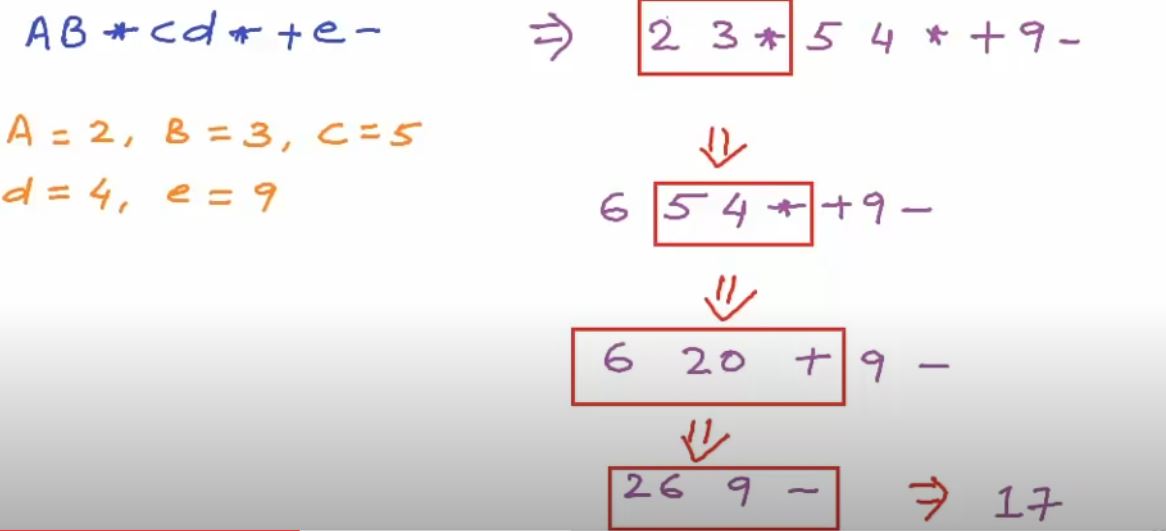 AB*cd*+e- ⇒ 2 3 * 5 4 * + 9 -
A = 2, B = 3, C = 5
d = 4, e = 9
6 5 4 * + 9 -
6 20 + 9 -
26 9 - ⇒ 17